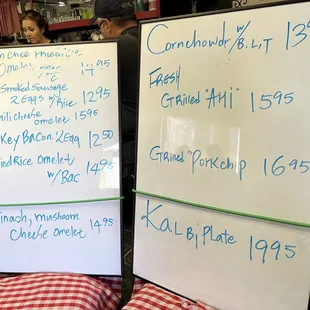 n chee
Omelet
Smoked Sausage
2 Eggs w/Rice 12 95
ili cheese
omelet 15 95
Key Bacon 2 Egg 12 50
ied Rice omelet
w/Bac 14 95
inach, mushoom
Cheese omelet 14 95
Cornchowdr w/B.L,T 13
FRESH
Grilled "AHI" 15 95
Grilled "Porkchip 16 95
KaLBiPLate 19 95